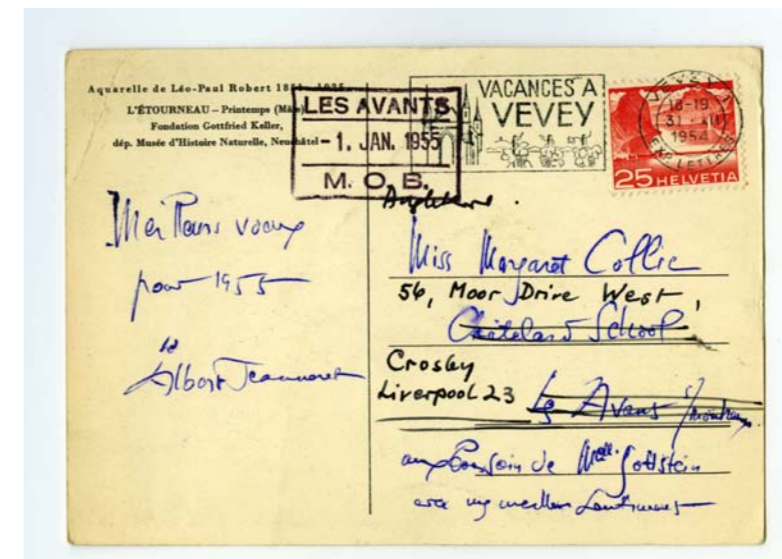 Aquarelle de Léo-Paul Robert 1851-1925
L'ÉTOURNEAU — Printemps
Fondation Gottfried Keller,
dép. Musée d'Histoire Naturelle, Neuchâtel
LES AVANTS
- 1. JAN. 1955
M. O. B.
VACANCES A
VEVEY
VEVEY 1
18-19
31. XII
1954
EXP. LETTRES
25 HELVETIA
Meilleurs vœux
pour 1955
de
Albert Jeanneret
Angleterre.
Miss Margaret Collie
56, Moor Drive West,
Châtelard School
Crosby
Liverpool 23
Les Avants s/Montreux
aux bons soins de Melle. Gottstein
avec mes meilleurs sentiments